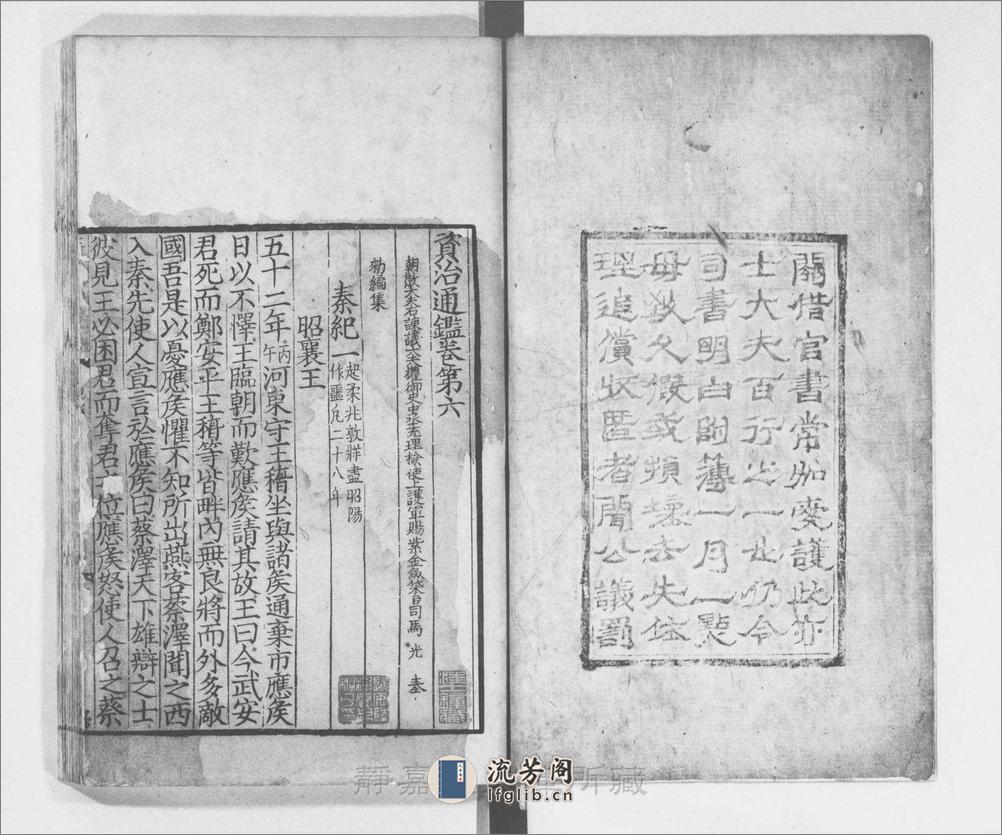 關借官書常加愛護此亦
士大夫百行之一也仍令
司書明白附簿一月一點
毋致久假或損壞去失依
理追償收匿者聞公議罰
資治通鑑卷第六
朝散大夫右諫議大夫權御史中丞充理檢使上護軍賜紫金魚袋臣司馬光奉
勑編集
秦紀一起柔兆敦牂盡昭陽作噩凡二十八年
昭襄王
五十二年丙午河東守王稽坐與諸侯通棄市應侯
日以不懌王臨朝而歎應侯請其故王曰今武安
君死而鄭安平王稽等皆畔內無良將而外多敵
國吾是以憂應侯懼不知所出燕客蔡澤聞之西
入秦先使人宣言於應侯曰蔡澤天下雄辯之士
彼見王必困君而奪君位應侯怒使人召之蔡
靜嘉 所藏
流芳阁
lfglib.cn